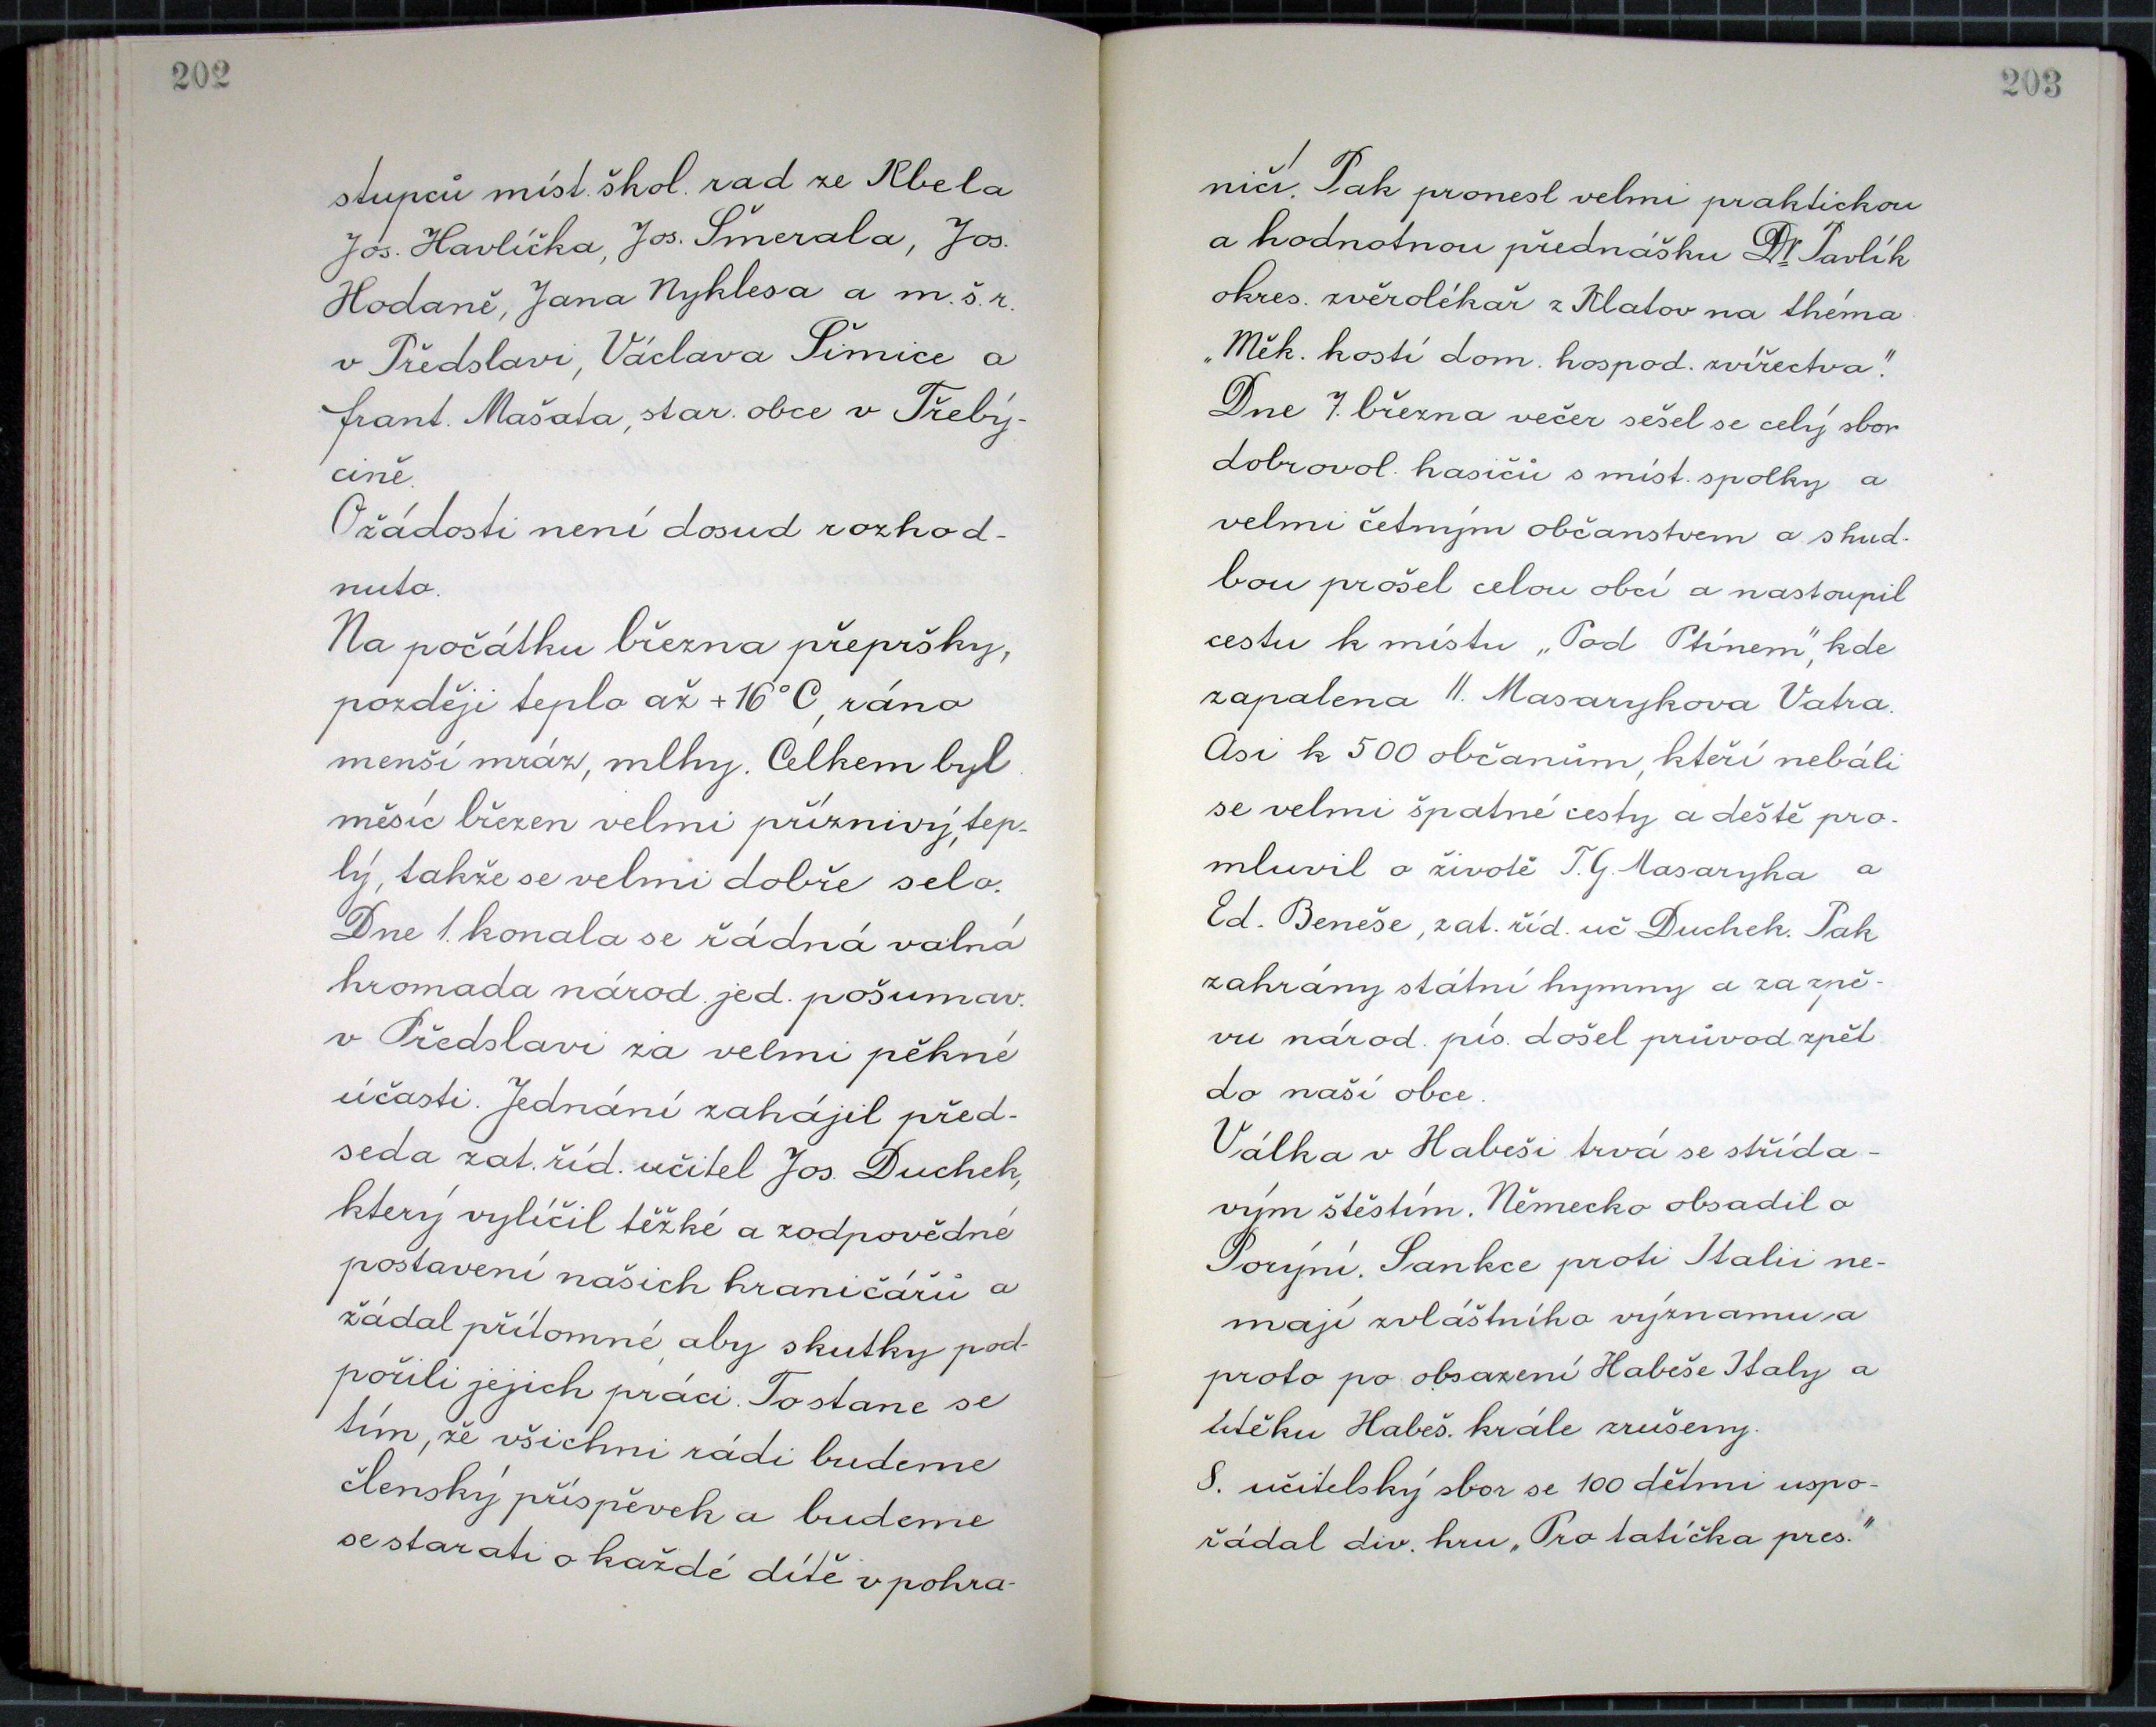 202
stupců míst. škol. rad ze Kbela
Jos. Havlíčka, Jos. Šmerala, Jos.
Hodaně, Jana Nyklesa a m. š. r.
v Předslavi, Václava Šimice a
frant. Mašata, star. obce v Třebý-
cině.
Ožádosti není dosud rozhod-
nuto.
Na počátku března přepršky,
později teplo až +16°C, ráno
menší mráz, mlhy. Celkem byl
měsíc březen velmi příznivý, tep-
lý, takže se velmi dobře selo.
Dne 1. konala se řádná valná
hromada národ. jed. pošumav.
v Předslavi za velmi pěkné
účasti. Jednání zahájil před-
seda zat. říd. učitel Jos. Duchek,
který vylíčil těžké a zodpovědné
postavení našich hraničářů a
žádal přítomné, aby skutky pod-
pořili jejich práci. To stane se
tím, že všichni rádi budeme
členský příspěvek a budeme
se starati o každé dítě v pohra-
203
ničí. Pak pronesl velmi praktickou
a hodnotnou přednášku Dr Pavlík
okres. zvěrolékař z Klatov na théma
„Měk. kostí dom. hospod. zvířectva".
Dne 7. března večer sešel se celý sbor
dobrovol. hasičů s míst. spolky a
velmi četným občanstvem a s hud-
bou prošel celou obcí a nastoupil
cestu k místu „Pod Ptínem", kde
zapálena II. Masarykova Vatra.
Asi k 500 občanům, kteří nebáli
se velmi špatné cesty a deště pro-
mluvil o životě T. G. Masaryka a
Ed. Beneše, zat. říd. uč Duchek. Pak
zahrány státní hymny a za zpě-
vu národ. pís. došel průvod zpět
do naší obce.
Válka v Habeši trvá se střída-
vým štěstím. Německo obsadilo
Porýní. Sankce proti Italii ne-
mají zvláštního významu a
proto po obsazení Habeše Italy a
útěku Habeš. krále zrušeny.
8. učitelský sbor se 100 dětmi uspo-
řádal div. hru „Pro tatíčka pres."